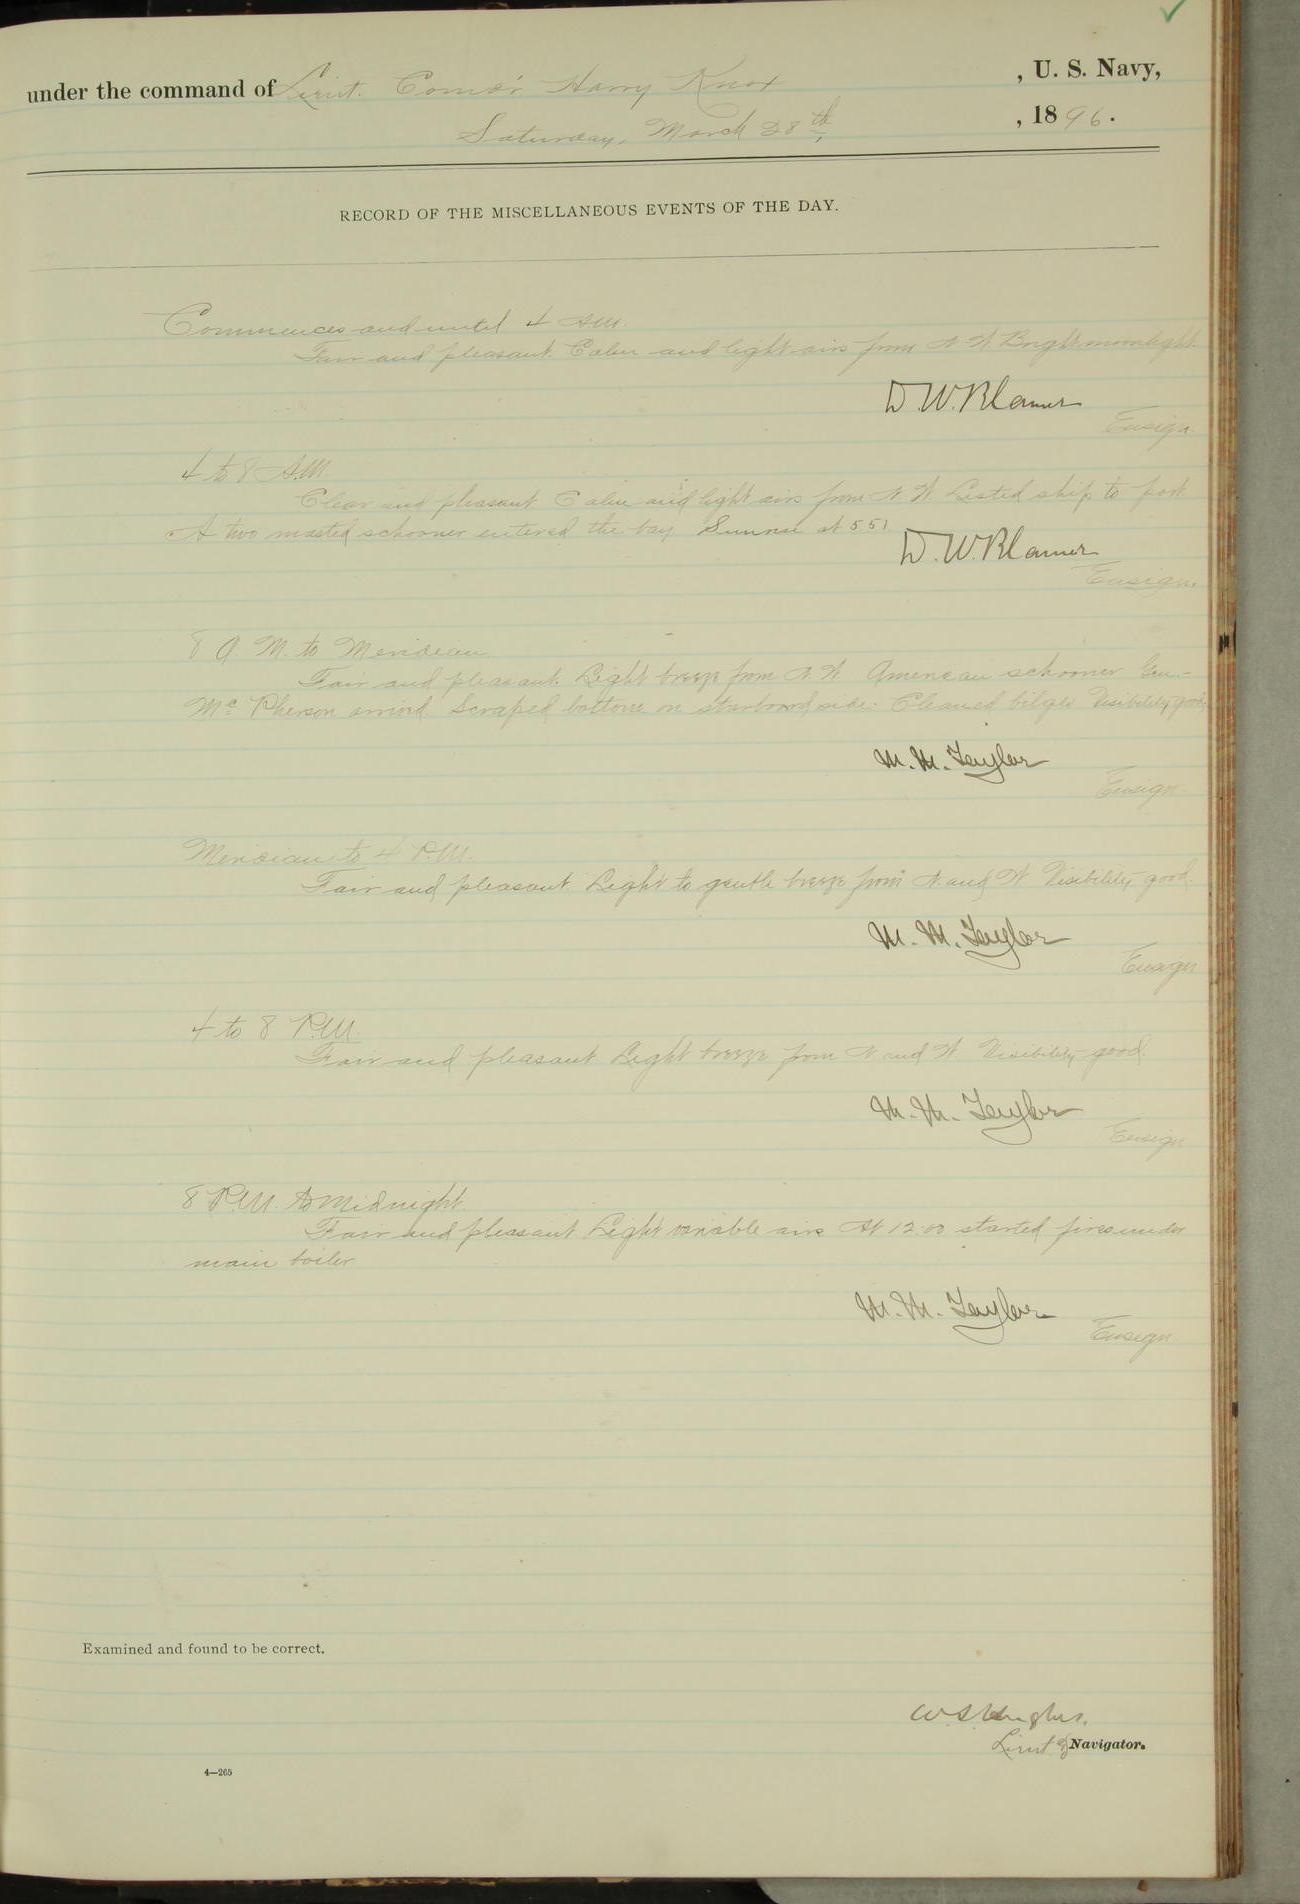 under the command of Lieut. Comd'r Harry Knox , U. S. Navy,
Saturday, March 28th, , 1896.
RECORD OF THE MISCELLANEOUS EVENTS OF THE DAY.
Commences and until 4 A.M.
Fair and pleasant. Calm and light airs from N.W. Bright moonlight.
D. W. Blamer
Ensign
4 to 8 A.M.
Clear and pleasant. Calm and light airs from N.W. Listed ship to port
A two masted schooner entered the bay. Sunrise at 5 51
D. W. Blamer
Ensign.
8 A. M. to Meridian
Fair and pleasant. Light breeze from N.W. American schooner Gen.
Mc Pherson arrived. Scraped bottom on starboard side. Cleaned bilges Visibility good.
M. M. Taylor
Ensign
Meridian to 4 P.M.
Fair and pleasant. Light to gentle breeze from N. and W. Visibility good.
M. M. Taylor
Ensign
4 to 8 P.M.
Fair and pleasant. Light breeze from N and W. Visibility good.
M. M. Taylor
Ensign
8 P.M. to Midnight.
Fair and pleasant. Light variable airs At 12.00 started fires under
main boiler
M. M. Taylor
Ensign
Examined and found to be correct.
W S Hughes.
Lieut & Navigator.
4—265